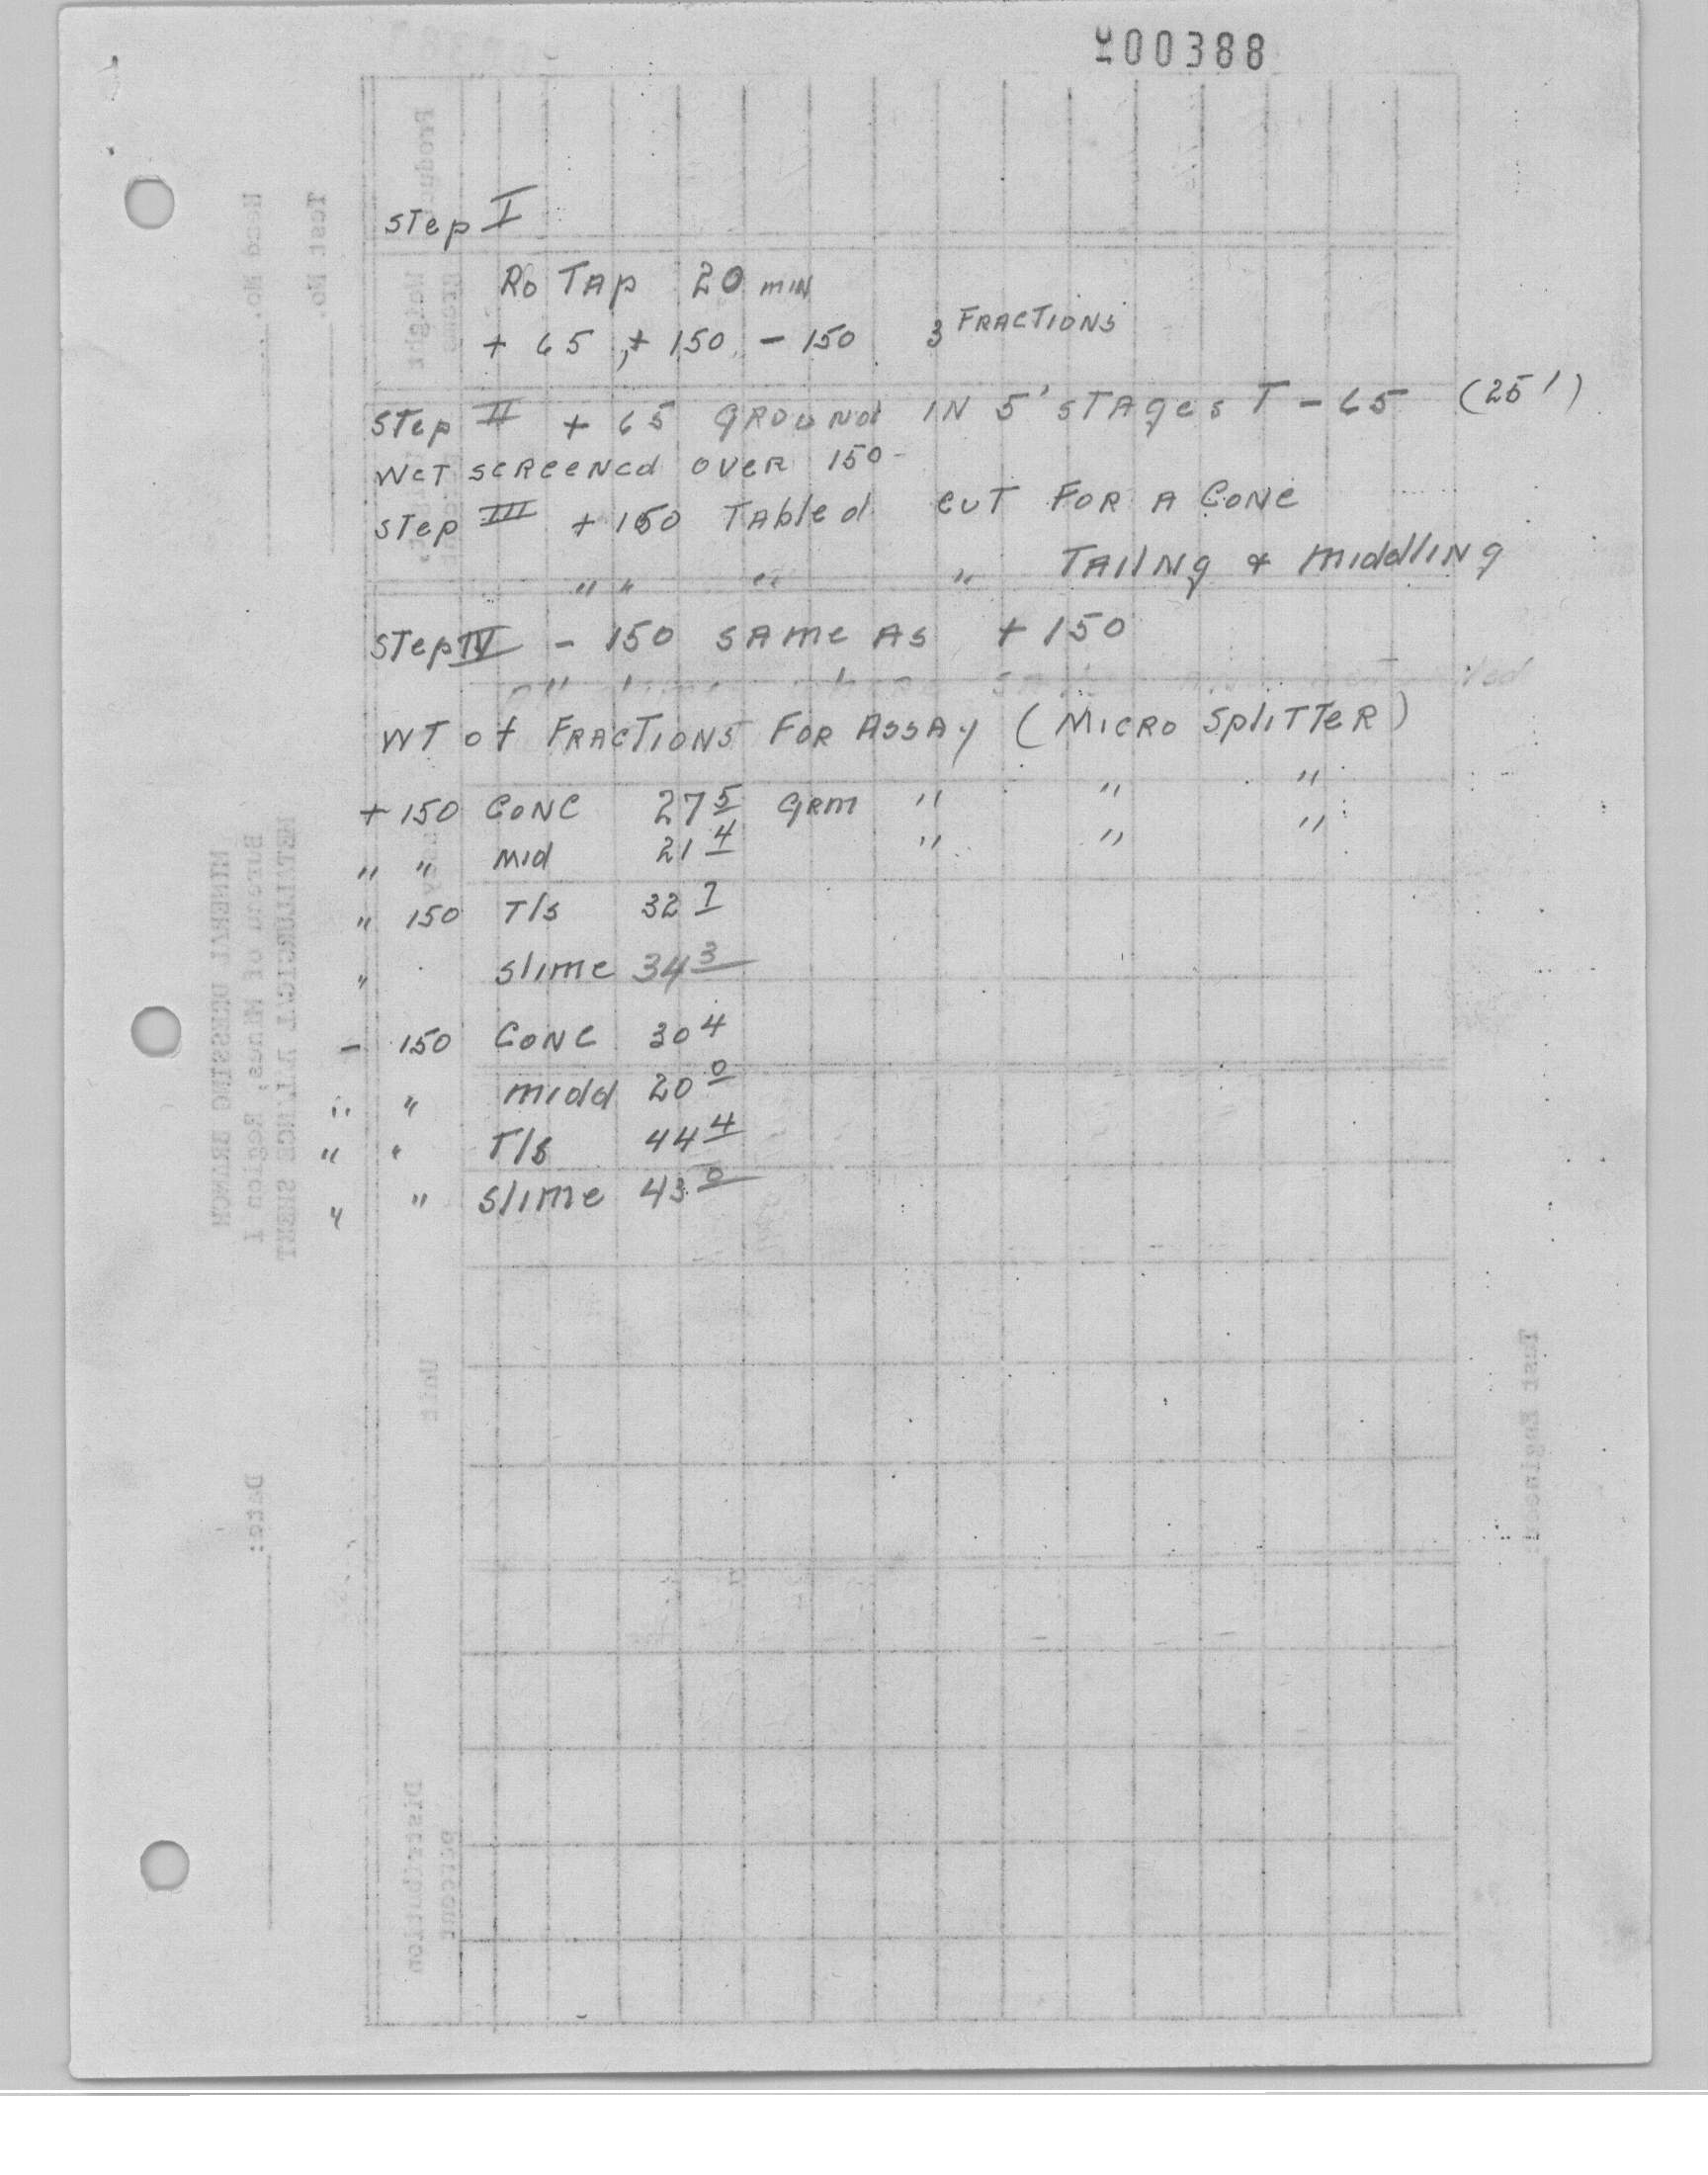 00388
Step I
Ro Tap 20 min
+ 65, + 150, - 150 3 Fractions
Step II + 65 Ground in 5' stages T - 65 (25')
Wet screened over 150-
Step III + 150 Tabled cut for a conc
" " " " Tailng & middling
Step IV - 150 same as + 150
WT of Fractions For Assay (Micro Splitter)
+ 150 Conc 27 5 Grm " " "
" " Mid 21 4 " " "
" 150 T/s 32 7
" slime 34 3
- 150 Conc 30 4
" " midd 20 0
" " T/s 44 4
" " slime 43 0
Test No.
Head No.
Product
Weight
Grams
Unit
Distribution
percent
METALLURGICAL BALANCE SHEET
Bureau of Mines, Region I
MINERAL DRESSING BRANCH
Date:
Test Engineer